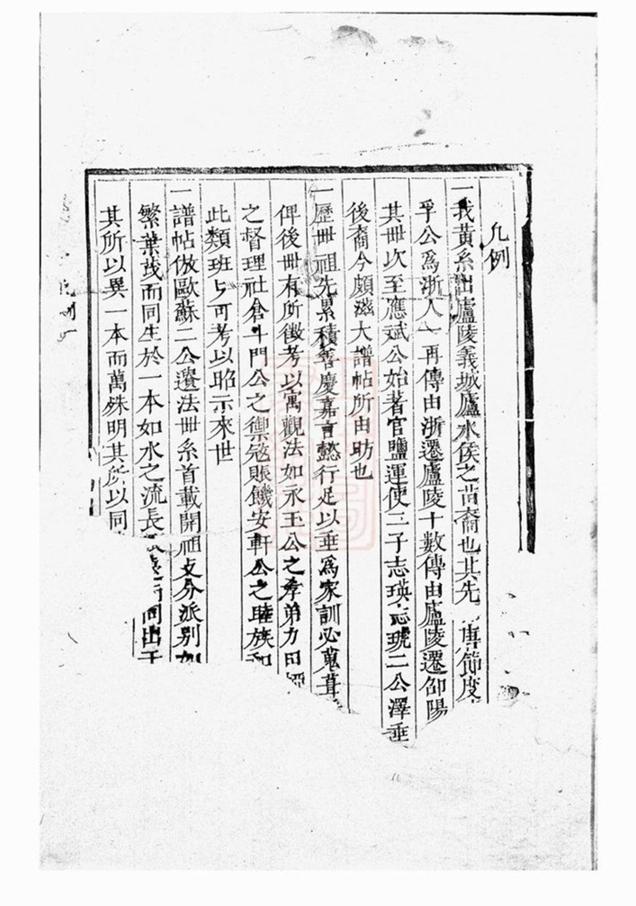 凡例
一我黃系出廬陵義城廬水侯之苗裔也其先唐節度
孚公爲浙人一再傳由浙遷廬陵十數傳由廬陵遷邵陽
其丗次至應斌公始著官鹽運使二子志瑛志琥二公澤垂
後裔今頗滋大譜帖所由昉也
一歷丗祖先累積善慶嘉言懿行足以垂爲家訓必蒐葺
俾後丗有所徵考以寓觀法如永玉公之孝弟力田
之督理社倉斗門公之禦寇賬饑安軒公之睦族和
此類班與可考以昭示來世
一譜帖倣歐蘇二公遺法丗系首載開祖支分派別如
繁葉茂而同生於一本如水之流長 同出于
其所以異一本而萬殊明其所以同